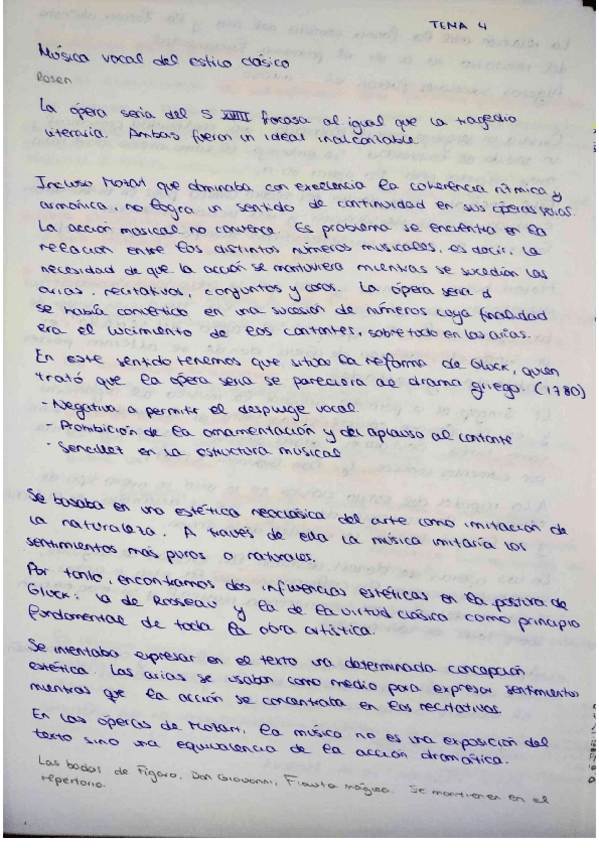 TEMA 4
Música vocal del estilo clásico
Rosen
La ópera seria del S XVIII fracasa al igual que la tragedia
literaria. Ambas fueron un ideal inalcanzable
Incluso Mozart que dominaba con excelencia la coherencia rítmica y
armónica, no logra un sentido de continuidad en sus óperas serias.
La acción musical no convence. Es problema se encuentra en la
relación entre los distintos números musicales, es decir, la
necesidad de que la acción se mantuviera mientras se sucedían las
arias, recitativos, conjuntos y coros. La ópera seria
se había convertido en una sucesión de números cuya finalidad
era el lucimiento de los cantantes, sobre todo en las arias.
En este sentido tenemos que situar la reforma de Gluck, quien
trató que la ópera seria se pareciera al drama griego. (1780)
- Negativa a permitir el despliege vocal.
- Prohibición de la ornamentación y del aplauso al cantante
- Sencillez en la estructura musical
Se basaba en una estética neoclásica del arte como imitación de
la naturaleza. A través de ella la música imitaría los
sentimientos más puros o naturales.
Por tanto, encontramos dos influencias estéticas en la postura de
Gluck: la de Rosseau y la de la virtud clásica como principio
fundamental de toda la obra artística.
Se intentaba expresar en el texto una determinada concepción
estética. Las arias se usaban como medio para expresar sentimientos
mientras que la acción se concentraba en los recitativos.
En las óperas de Mozart, la música no es una exposición del
texto sino una equivalencia de la acción dramática.
Las bodas de Fígaro, Don Giovanni, Flauta mágica. Se mantienen en el
repertorio.